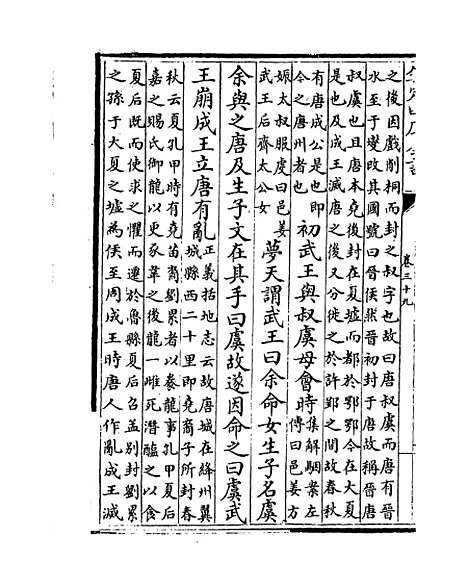 欽定四庫全書
卷三十九
之後因戲削桐而封之叔字也故曰唐叔虞而唐有晉
水至于燮改其國號曰晉侯然晉初封于唐故稱晉唐
叔虞也且唐本堯後封在夏墟而都於鄂鄂今在大夏
是也及成王滅唐之後又分徙之於許郢之間故春秋
有唐成公是也即
今之唐州者也
初武王與叔虞母會時
集解駰案左
傳曰邑姜方
娠太叔服虔曰邑姜
武王后齊太公女
夢天謂武王曰余命女生子名虞
余與之唐及生子文在其手曰虞故遂因命之曰虞武
王崩成王立唐有亂
正義括地志云故唐城在絳州翼
城縣西二十里即堯裔子所封春
秋云夏孔甲時有堯苗裔劉累者以豢龍事孔甲夏后
嘉之賜氏御龍以更豕韋之後龍一雌死潛醢之以食
夏后既而使求之懼而遷於魯縣夏后召孟別封劉累
之孫于大夏之墟為侯至周成王時唐人作亂成王滅